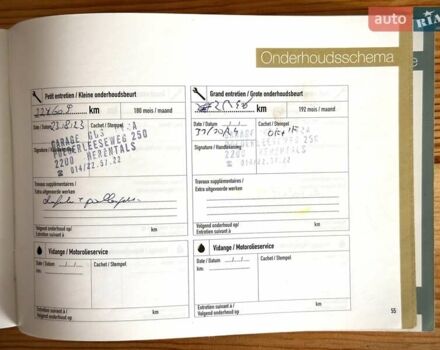 auto RIA
Onderhoudsschema
Petit entretien / Kleine onderhoudsbeurt
km
180 mois / maand
Date / Datum 23.8.23
Cachet / Stempel
GARAGE
POEDERLEESEWEG 250
2200 HERENTALS
☎ 014/22.57.22
Signature / Handtekening
Travaux supplémentaires /
Extra uitgevoerde werken
Volgend onderhoud op/
Entretien suivant à
km
Grand entretien / Grote onderhoudsbeurt
km
192 mois / maand
Date / Datum
Cachet / Stempel
Signature / Handtekening
2200 HERENTALS
☎ 014/22.57.22
Travaux supplémentaires /
Extra uitgevoerde werken
Volgend onderhoud op /
Entretien suivant à
km
Vidange / Motorolieservice
Date / Datum / /
Cachet / Stempel
km
Entretien suivant à /
Volgend onderhoud op
km
Vidange / Motorolieservice
Date / Datum / /
Cachet / Stempel
km
Entretien suivant à /
Volgend onderhoud op
km
55